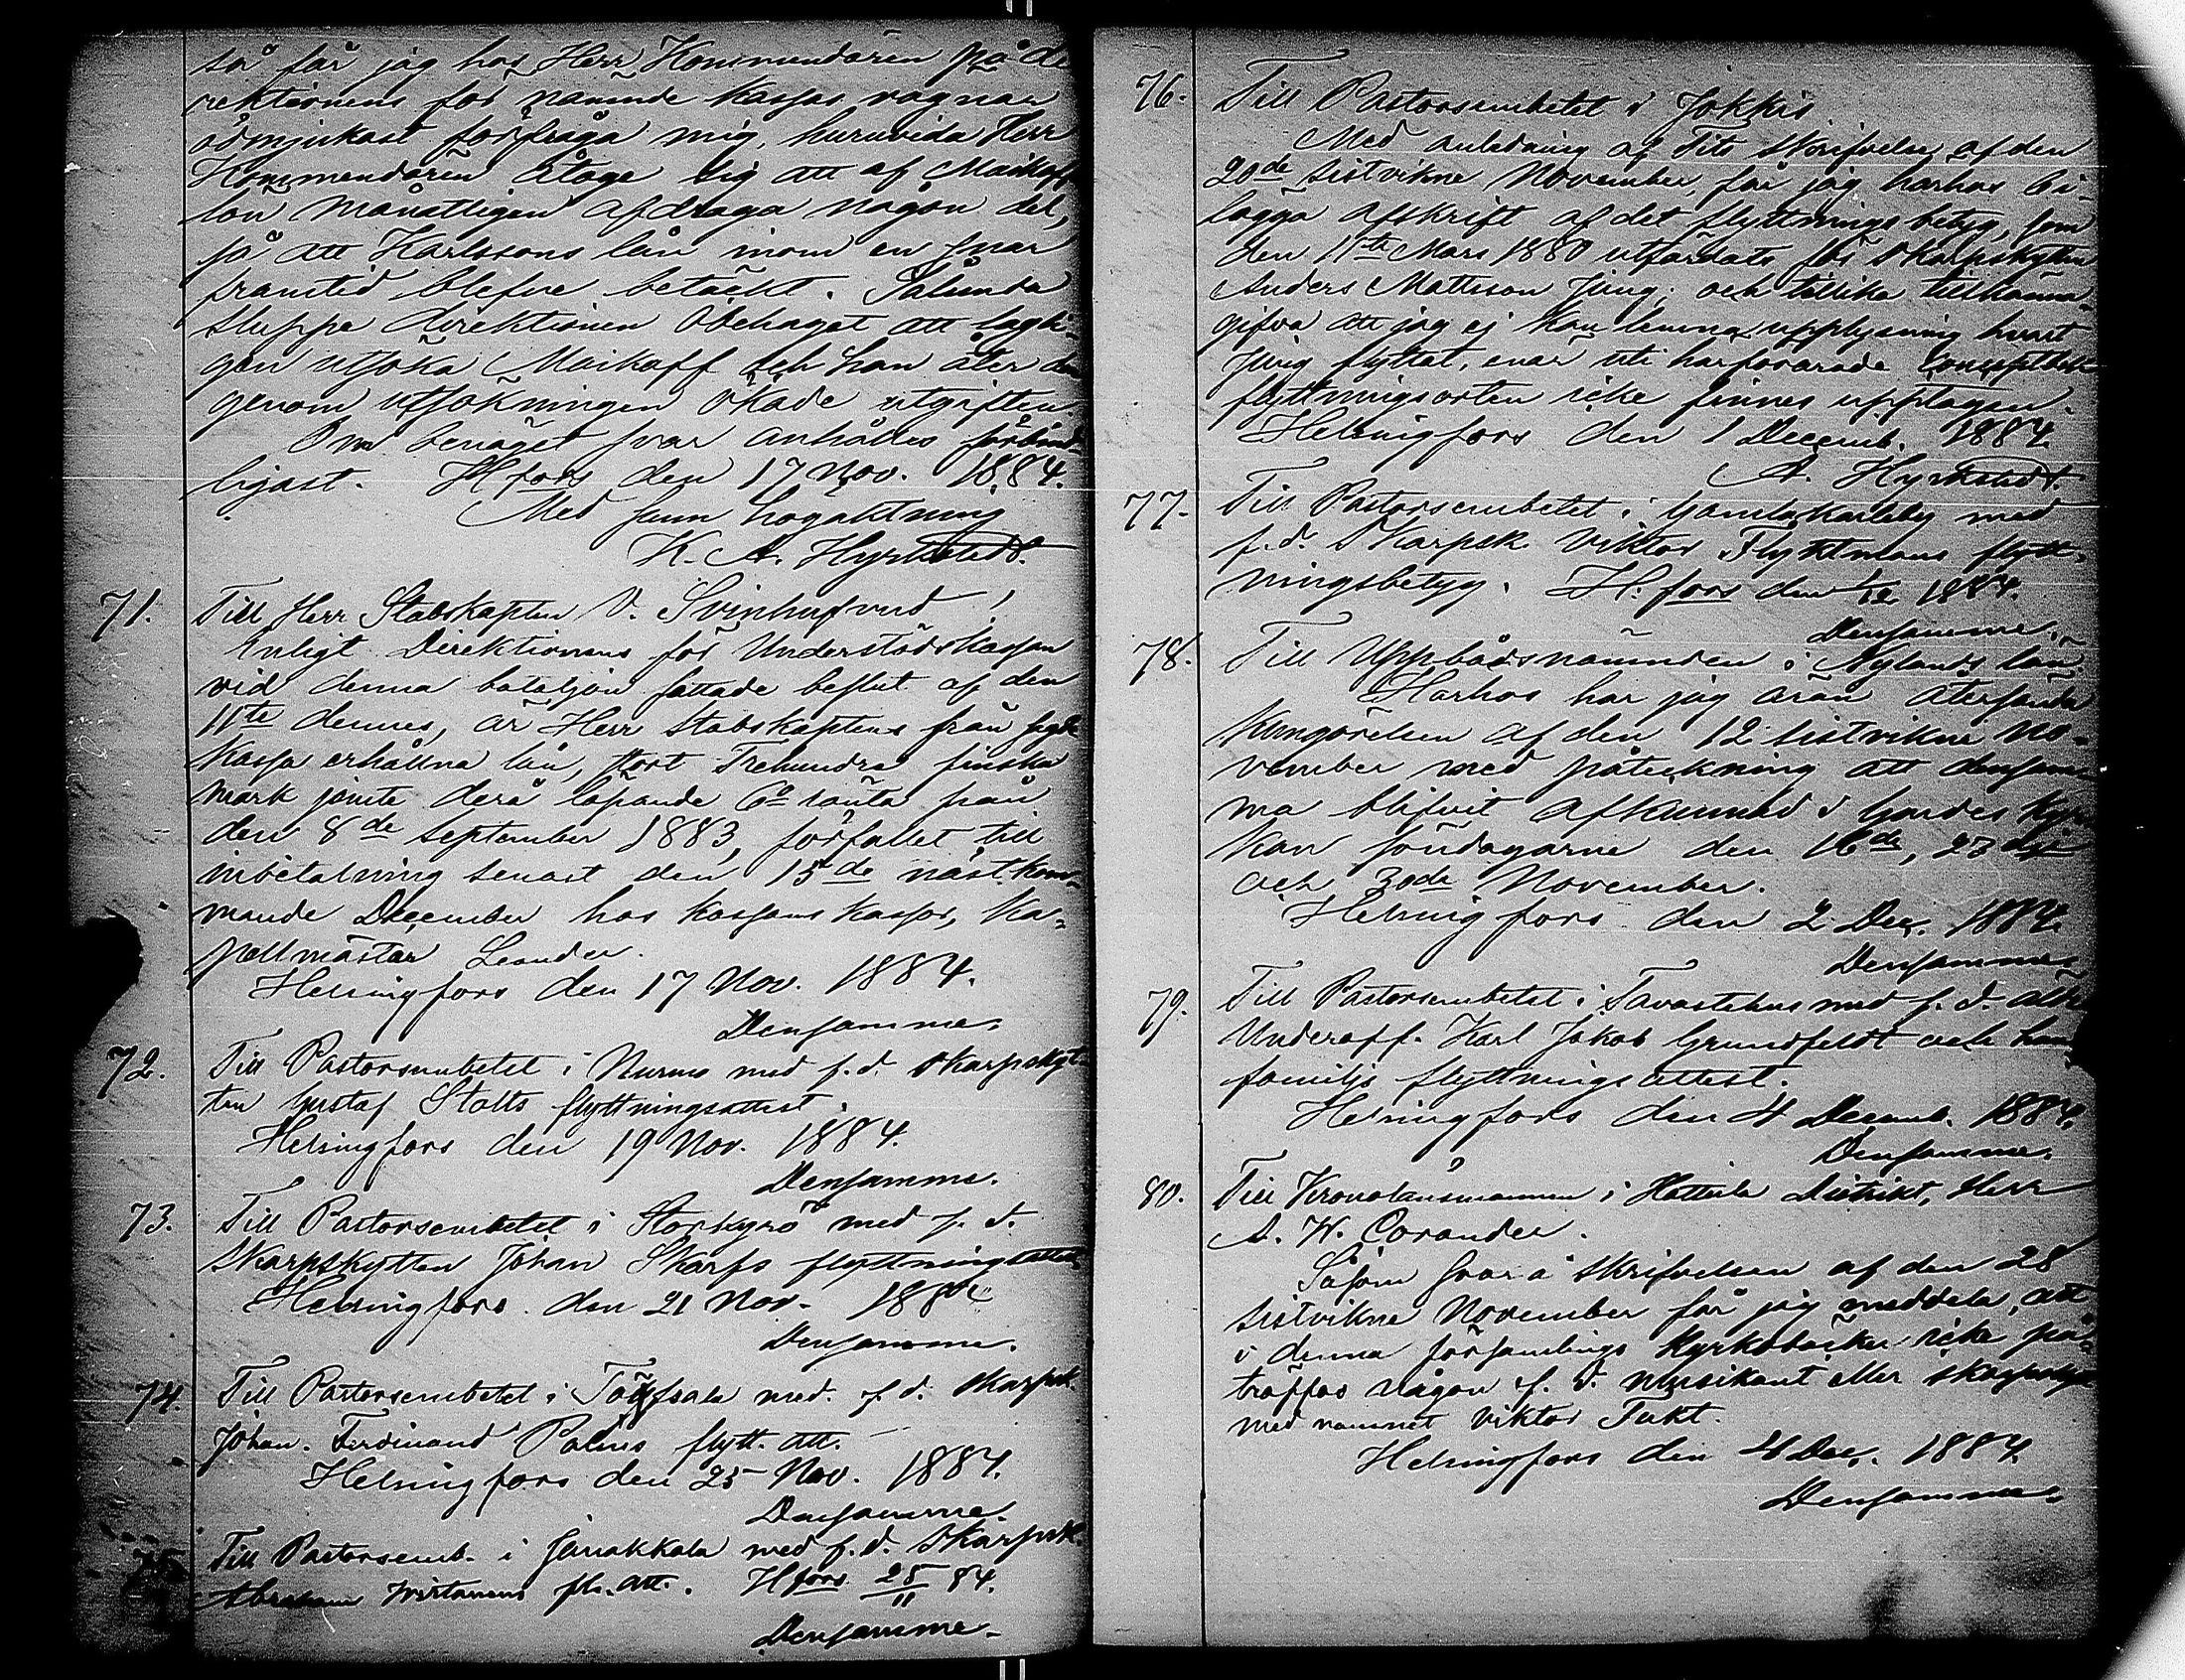 så får jag hos Herr Kommendören på di
rektionens för nämnde kassas vägnar
ödmjukast förfråga mig, huruvida Herr
Kommendören åtage sig att af Maikoffs
lön månatligen afdraga någon del,
så att Karlssons lån inom en snar
framtid blefve betäckt. Sålunda
sluppe direktionen obehaget att lagli-
gen utsöka Maikoff och han åter de
genom utsökningen ökade utgifterna.
Om benäget svar anhålles förbind-
ligast. H.fors den 17 Nov. 1884.
Med sann högaktning
K. A. Hyrkstedt.
71. Till Herr Stabskapten V. Svinhufvud,
Enligt Direktionens för Understödskassan
vid denna bataljon fattade beslut af den
11te dennes, är Herr Stabskaptens från sagde
kassa erhållna lån, stort Trehundra finska
mark jämte derå löpande 6% ränta från
den 8de September 1883, förfallet till
inbetalning senast den 15de nästkom-
mande December hos kassans kassör, Ka-
pellmästar Leander.
Helsingfors den 17 Nov. 1884.
Densamme.
72. Till Pastorsembetet i Nurmo med f.d. skarpskyt-
ten Gustaf Stolts flyttningsattest.
Helsingfors den 19 Nov. 1884.
Densamme.
73. Till Pastorsembetet i Storkyrö med f. d.
Skarpskytten Johan Skarps flyttningsattest
Helsingfors den 21 Nov. 1884
Densamme.
74. Till Pastorsembetet i Töfsala med f. d. skarpsk.
Johan Ferdinand Palms flytt. att.
Helsingfors den 25 Nov. 1884.
Densamme.
75. Till Pastorsemb. i Janakkala med f.d. Skarpsk.
Abraham Wirtanens fl. att. H.fors 25/11 84.
Densamme.
76. Till Pastorsembetet i Jokkis
Med anledning af Dits skrifvelse af den
20de sistvikne November, får jag härhos bi-
lägga afskrift af det flyttningsbetyg, som
den 11te Mars 1880 utfärdats för skarpskytten
Anders Mattsson Ljung; och tillika tillkänna-
gifva att jag ej kan lemna upplysning hvart
Ljung flyttat, enär uti härförvarade conceptbok
flyttningsorten icke finnes upptagen.
Helsingfors den 1 Decemb. 1884
A. Hyrkstedt.
77. Till Pastorsembetet i Gamlakarleby med
f.d. Skarpsk. Viktor Flyktmans flytt-
ningsbetyg. H.fors den 1/12 1884.
Densamme.
78. Till Uppbådsnämnden i Nylands län
Härhos har jag äran återsända
kungörelsen af den 12 sistvikne No-
vember med påteckning att densam-
ma blifvit afkunnad i Gardes kyr-
kan söndagarne den 16de, 23dje
och 30de November.
Helsingfors den 2 Dec. 1884
Densamme.
79. Till Pastorsembetet i Tavastehus med f. d. äldre
Underoff. Karl Jakob Grundfeldt och hans
familjs flyttningsattest.
Helsingfors den 4 Decemb. 1884.
Densamme.
80. Till Kronolänsmannen i Hattula Distrikt, Herr
A. W. Corander.
Såsom svar å skrifvelsen af den 28
sistvikne November får jag meddela, att
i denna församlings kyrkoböcker icke på-
träffas någon f. d. musikant eller skarpskytt
med namnet Viktor Takt.
Helsingfors den 4 Dec. 1884.
Densamme.